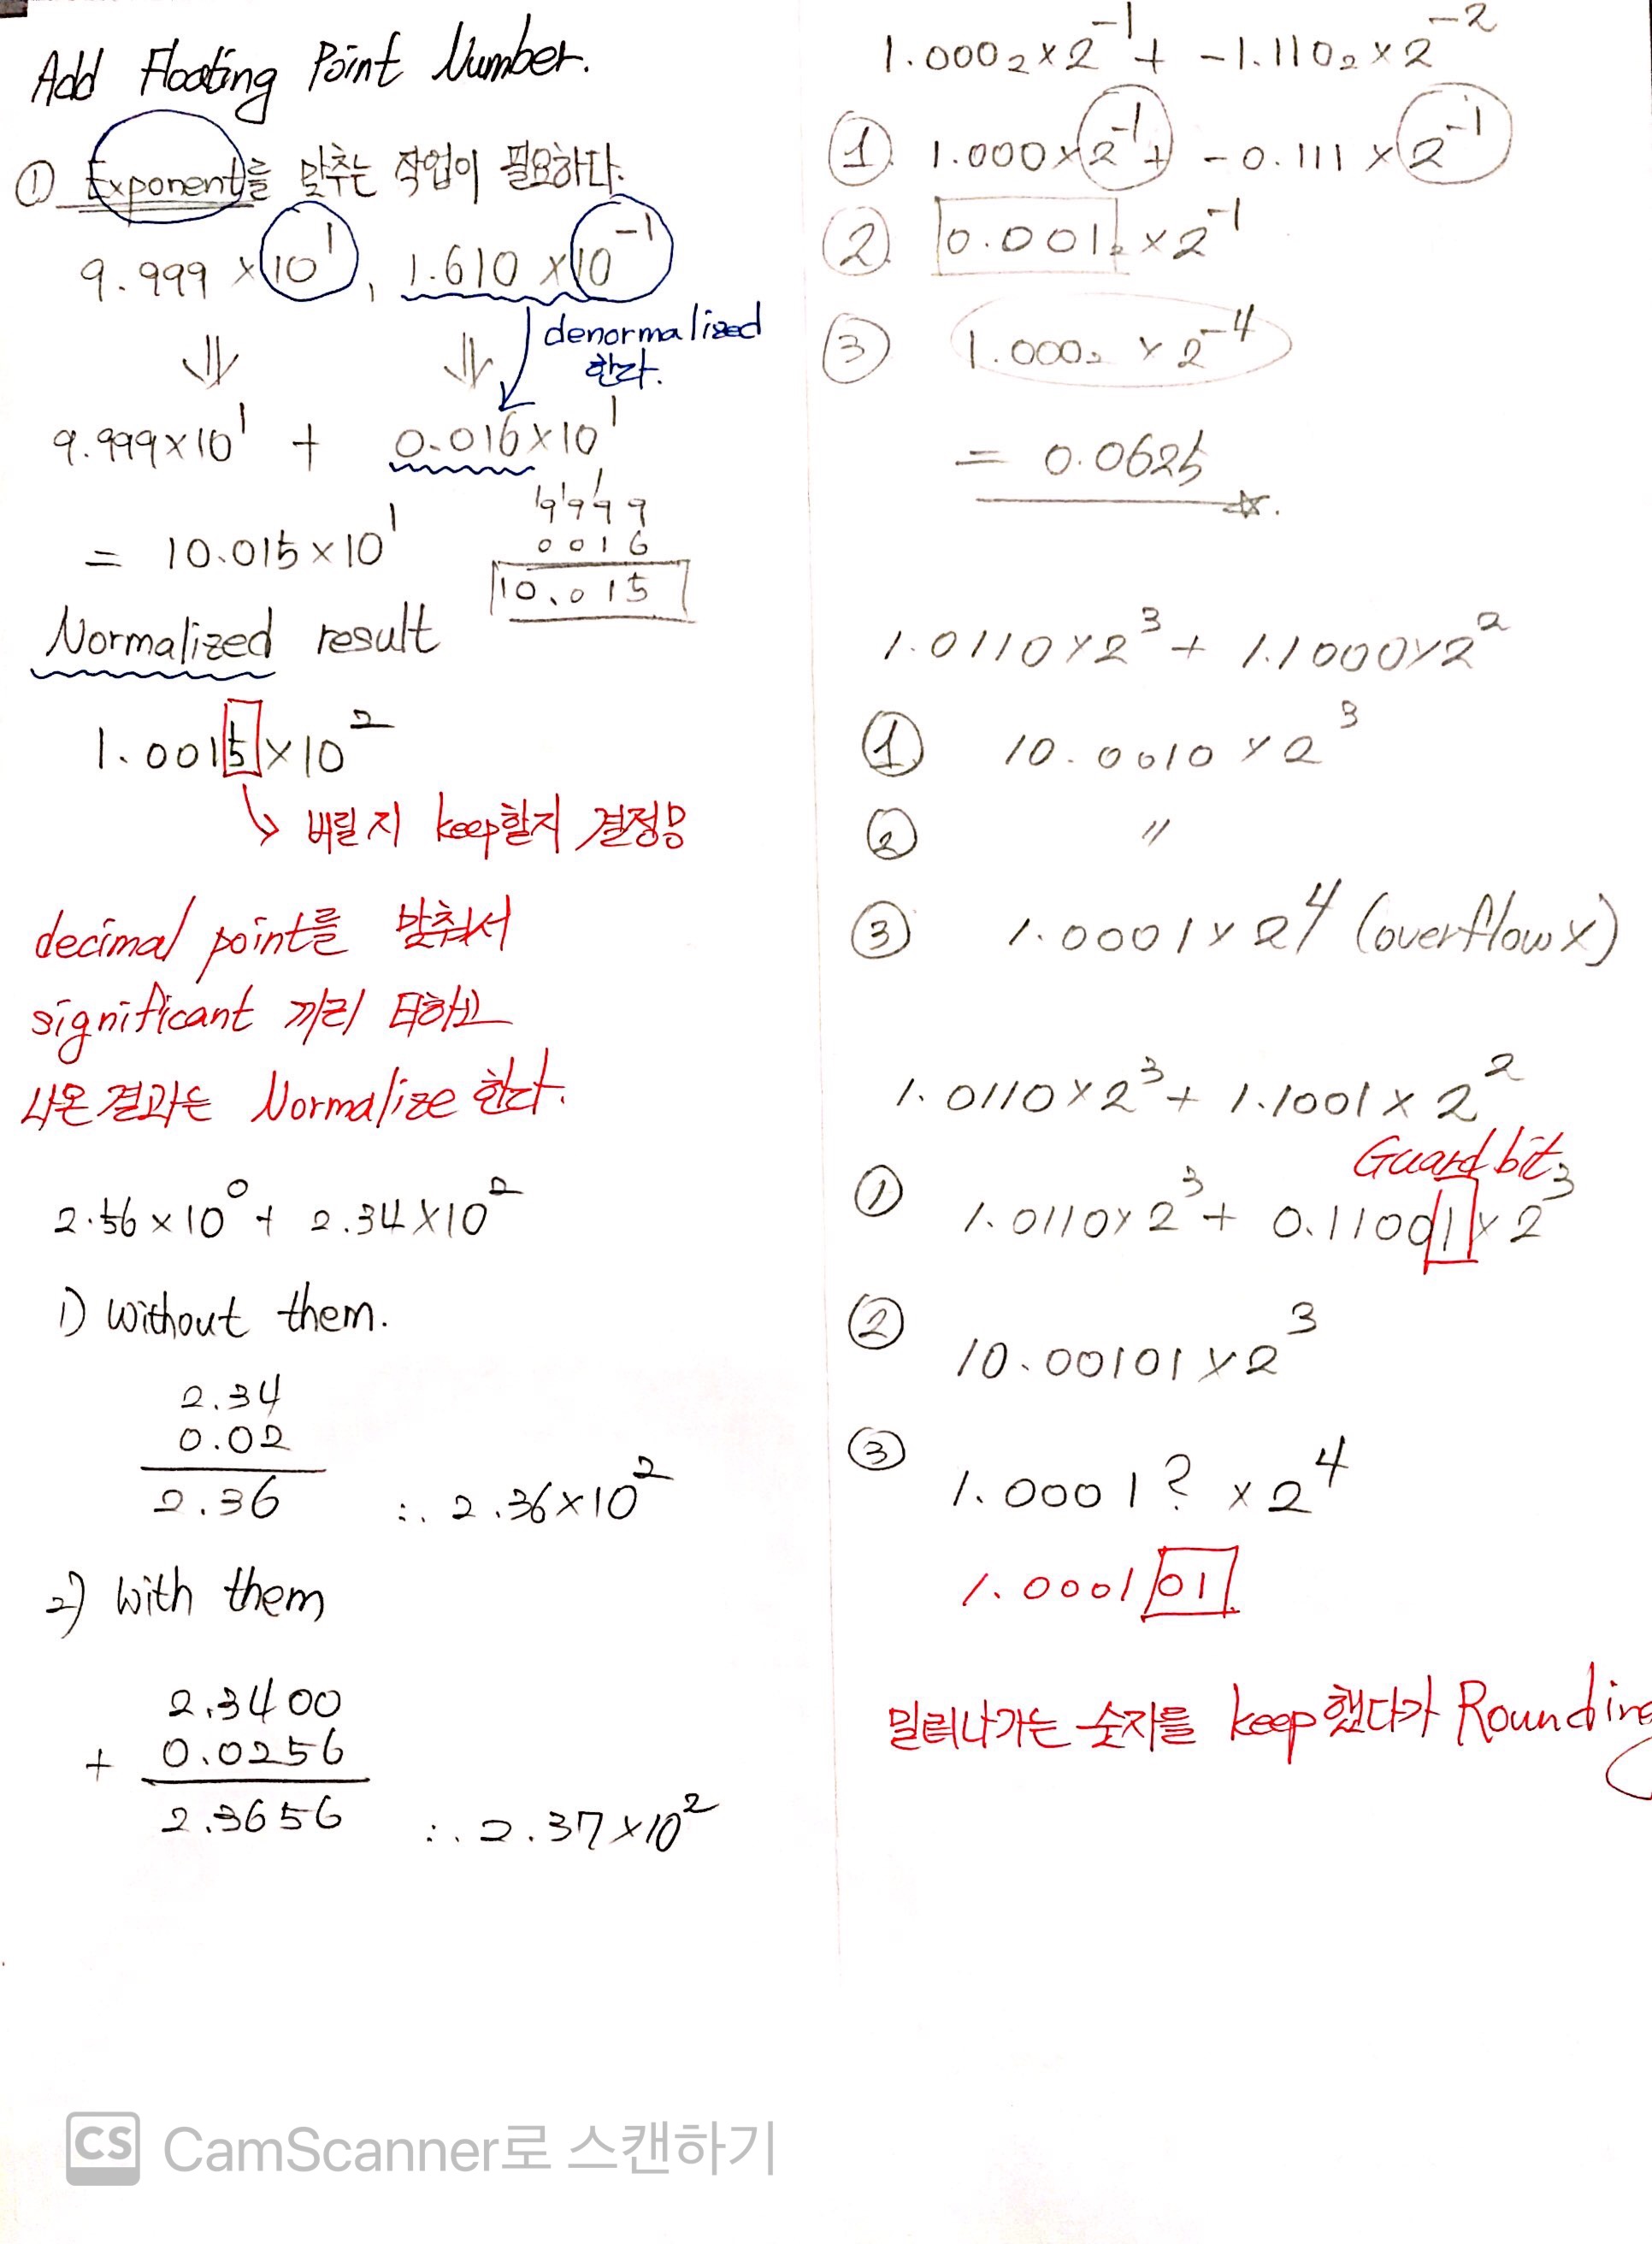 Add Floating Point Number.
① Exponent를 맞추는 작업이 필요하다.
9.999 × 10¹ , 1.610 × 10⁻¹
⇓ ⇓ denormalized
한다.
9.999×10¹ + 0.016×10¹
= 10.015×10¹
9999
0016
10.015
Normalized result
1.0015×10²
↳ 버릴지 keep할지 결정
decimal point를 맞춰서
significant 끼리 더하고
나온 결과는 Normalize 한다.
2.56×10⁰ + 2.34×10²
1) without them.
2.34
0.02
2.36 ∴ 2.36×10²
2) with them
2.3400
+ 0.0256
2.3656 ∴ 2.37×10²
1.000₂×2⁻¹ + -1.110₂×2⁻²
① 1.000×2⁻¹ + -0.111×2⁻¹
② 0.001₂×2⁻¹
③ 1.000₂×2⁻⁴
= 0.0625
1.0110×2³ + 1.1000×2²
① 10.0010×2³
② "
③ 1.0001×2⁴ (overflow x)
1.0110×2³ + 1.1001×2²
Guard bit
① 1.0110×2³ + 0.11001×2³
② 10.00101×2³
③ 1.0001?×2⁴
1.000101
밀려나가는 숫자를 keep했다가 Rounding
CS CamScanner로 스캔하기